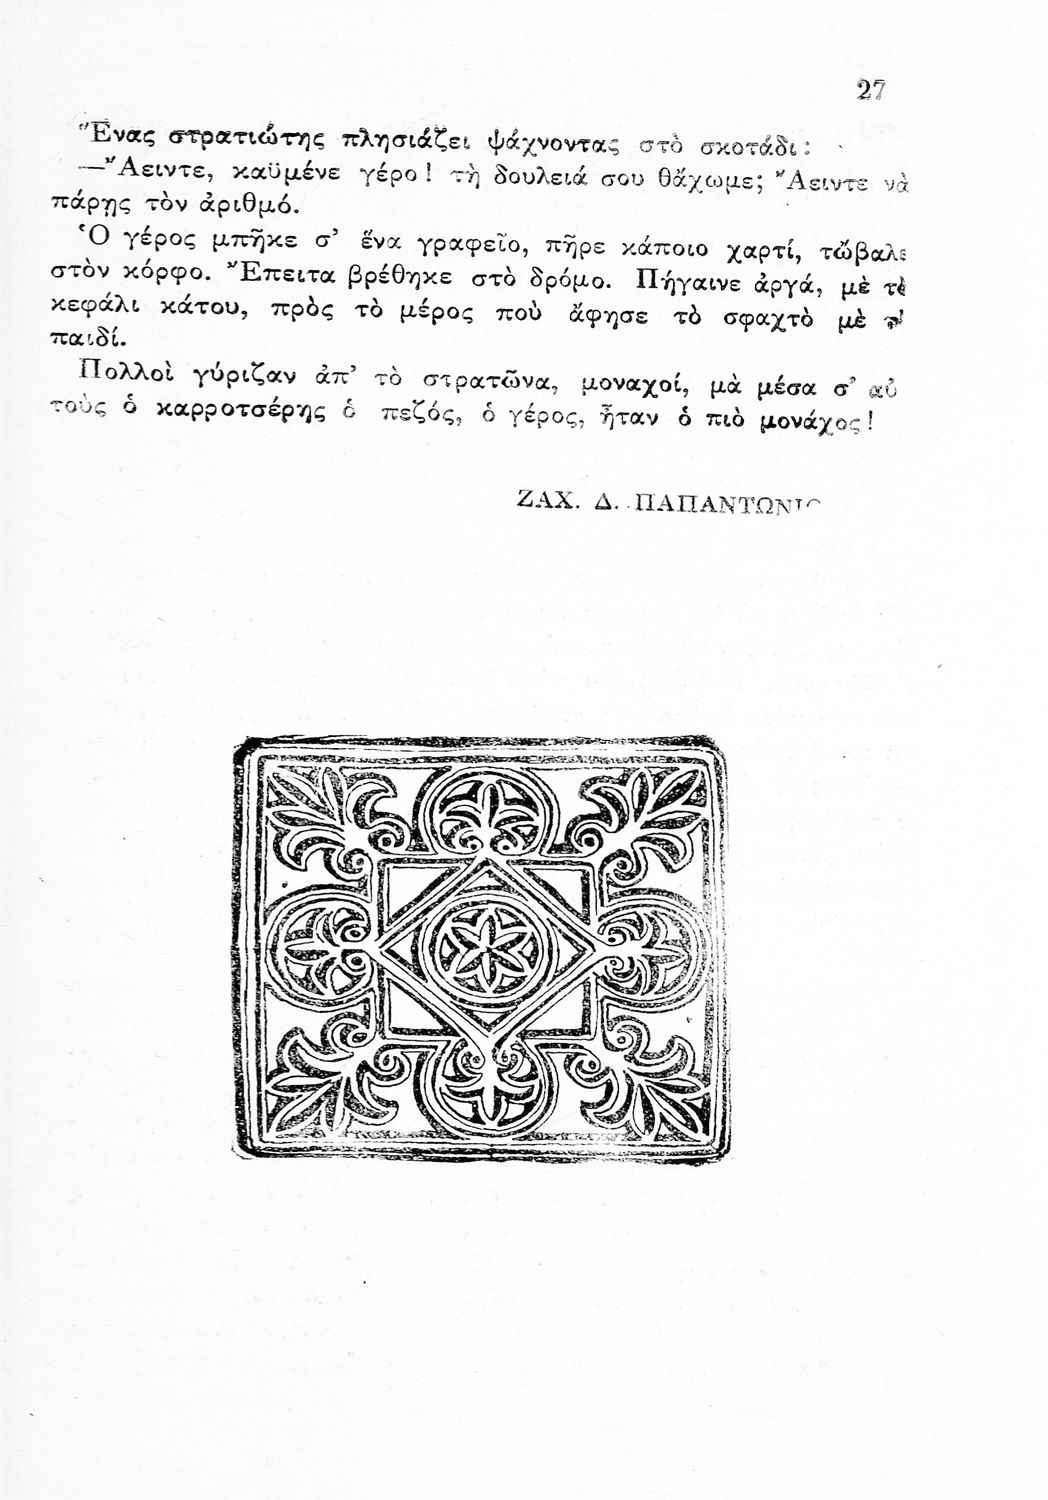 27
Ἕνας στρατιώτης πλησιάζει ψάχνοντας στὸ σκοτάδι:
—Ἄειντε, καϋμένε γέρο! τὴ δουλειά σου θἄχωμε; Ἄειντε νὰ
πάρῃς τὸν ἀριθμό.
Ὁ γέρος μπῆκε σ’ ἕνα γραφεῖο, πῆρε κάποιο χαρτί, τὤβαλε
στὸν κόρφο. Ἔπειτα βρέθηκε στὸ δρόμο. Πήγαινε ἀργά, μὲ τὸ
κεφάλι κάτου, πρὸς τὸ μέρος ποὺ ἄφησε τὸ σφαχτὸ μὲ
παιδί.
Πολλοὶ γύριζαν ἀπ’ τὸ στρατῶνα, μοναχοί, μὰ μέσα σ’ αὐ
τοὺς ὁ καρροτσέρης ὁ πεζός, ὁ γέρος, ἦταν ὁ πιὸ μονάχος!
ΖΑΧ. Δ. ΠΑΠΑΝΤΩΝΙΟ